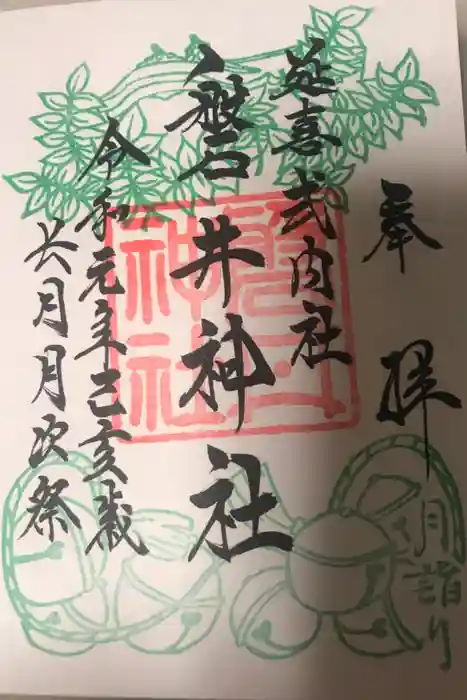 奉拝
月詣り
延喜式内社
磐井神社
令和元年己亥歳
六月月次祭
磐井神社